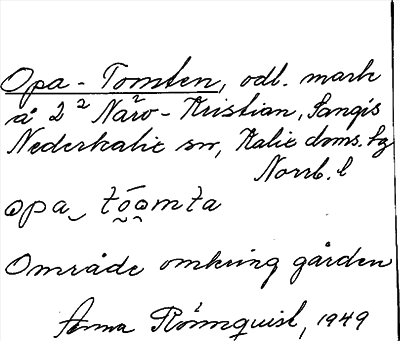 Opa-Tomten, odl. mark
å 2² Näro-Kristian, Sangis
Nederkalix sn, Kalix doms. sg
Norrb. l
opa tóomta
Område omkring gården
Anna Rönnquist, 1949